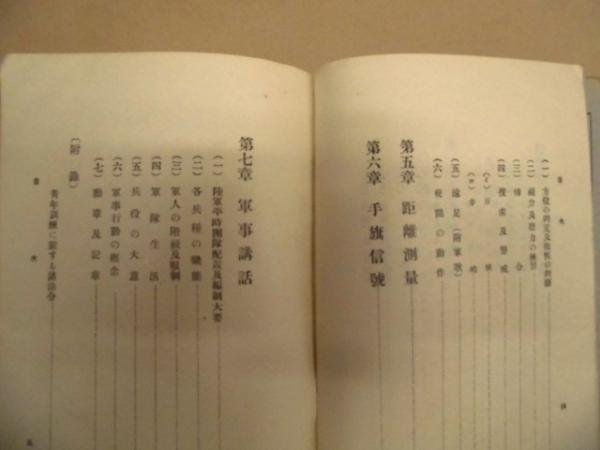 目次
(一) 方位の判定及地形の判断
(二) 視力及聴力の練習
(三) 傳令
(四) 捜索及警戒
(イ) 斥候
(ロ) 歩哨
(五) 遠足(附軍歌)
(六) 夜間の動作
第五章 距離測量
第六章 手旗信號
四
第七章 軍事講話
(一) 陸軍平時團隊配置及編制大要
(二) 各兵種の職能
(三) 軍人の階級及服制
(四) 軍隊生活
(五) 兵役の大意
(六) 軍事行動の概念
(七) 勳章及記章
(附錄)
青年訓練に關する諸法令
目次
五